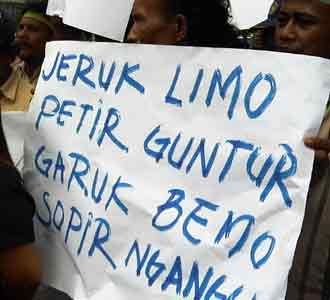 JERUK LIMO
PETIR GUNTUR
GARUK BEMO
SOPIR